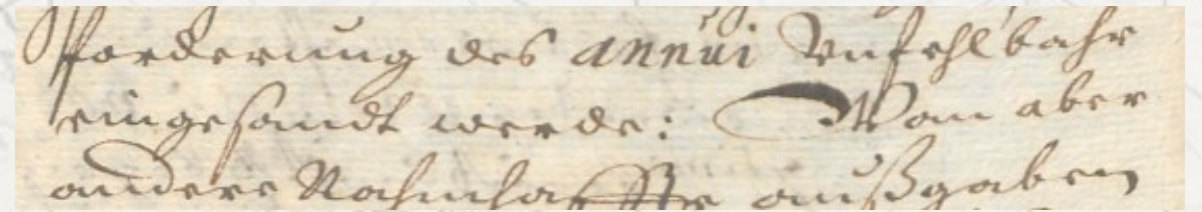 forderung des annui Vnfehlbahr
eingesandt werde: Wan aber
andere Nahmhaffte außgaben